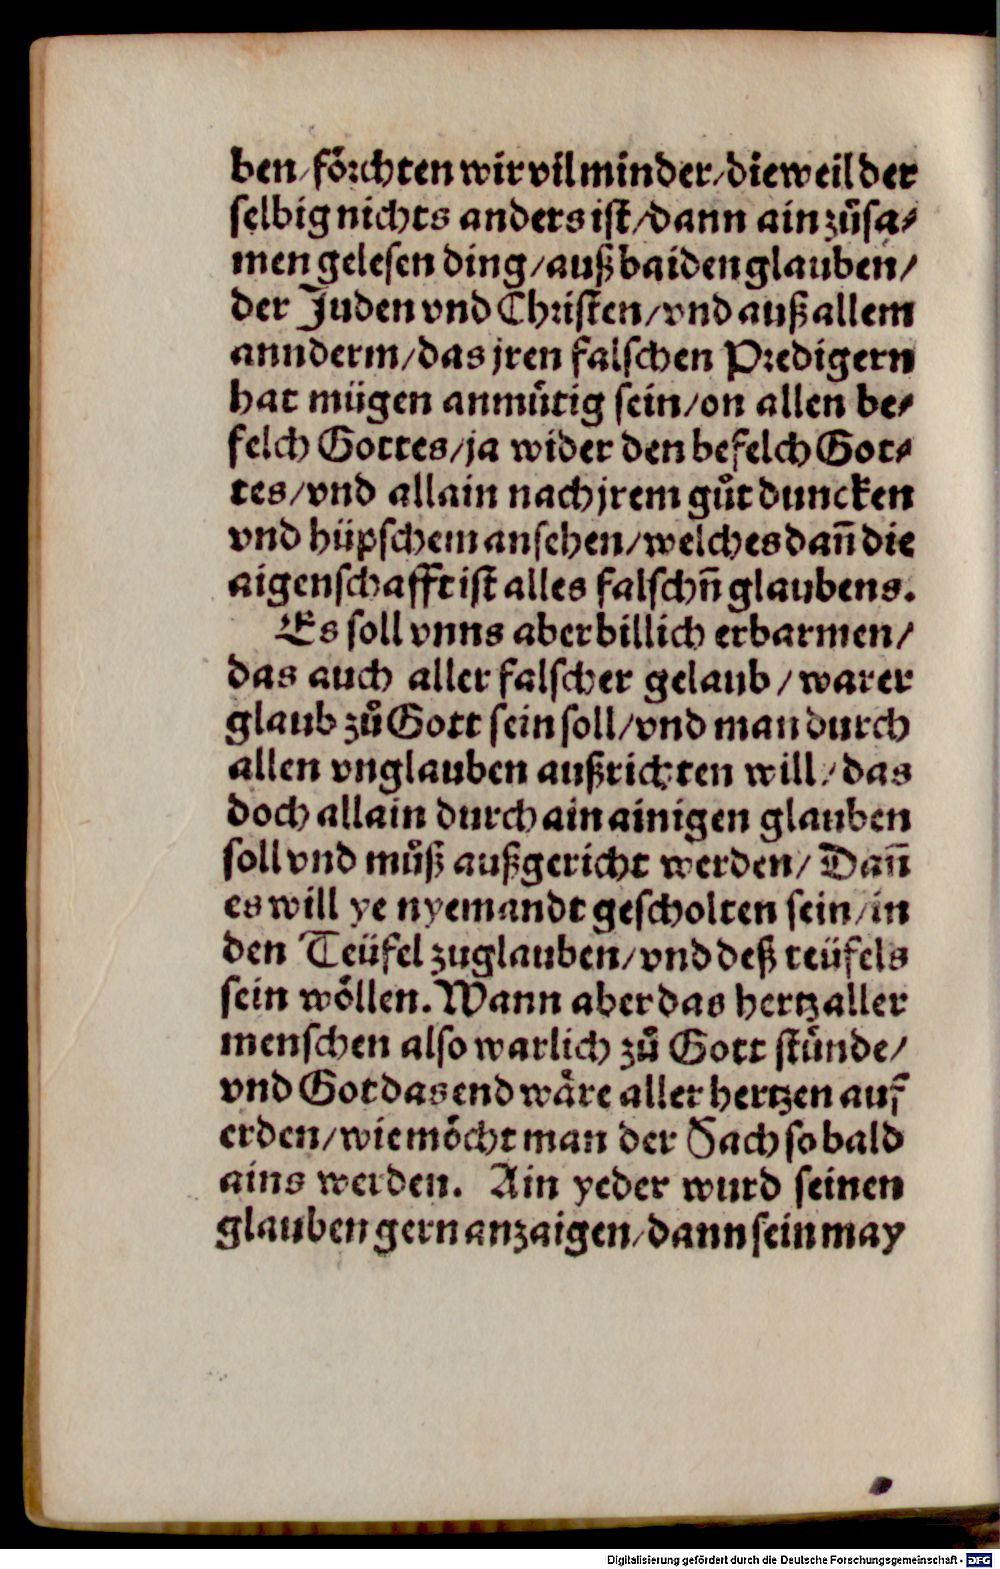 ben/ foͤrchten wir vil minder/ dieweil der
selbig nichts anders ist/ dann ain zuͦsa⸗
men gelesen ding/ auß baiden glauben/
der Juden vnd Christen/ vnd auß allem
annderm/ das jren falschen Predigern
hat mügen anmuͤtig sein/ on allen be⸗
felch Gottes/ ja wider den befelch Got⸗
tes/ vnd allain nach jrem guͦt duncken
vnd hüpschem ansehen/ welches dañ die
aigenschafft ist alles falschñ glaubens.
Es soll vnns aber billich erbarmen/
das auch aller falscher gelaub/ warer
glaub zuͦ Gott sein soll/ vnd man durch
allen vnglauben außrichten will/ das
doch allain durch ain ainigen glauben
soll vnd muͦß außgericht werden/ Dañ
es will ye nyemandt gescholten sein/ in
den Teüfel zuglauben/ vnd deß teüfels
sein woͤllen. Wann aber das hertz aller
menschen also warlich zuͦ Gott stuͤnde/
vnd Got das end waͤre aller hertzen auf
erden/ wie moͤcht man der Sach so bald
ains werden. Ain yeder wurd seinen
glauben gern anzaigen/ dann sein may
Digitalisierung gefördert durch die Deutsche Forschungsgemeinschaft - DFG